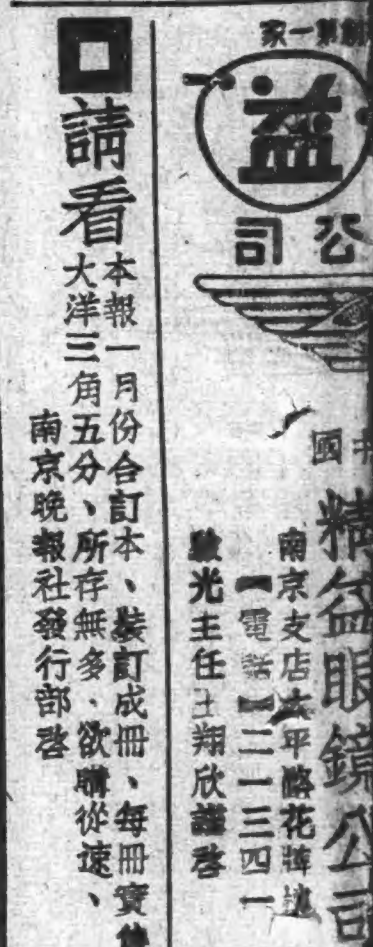 家一第
益
司公
國
精益眼鏡公司
南京支店太平路花牌
【電話】二一三四一
驗光主任王翔欣謹啓
請看
本報一月份合訂本、裝訂成冊、每冊實價
大洋三角五分、所存無多、欲購從速、
南京晚報社發行部啓